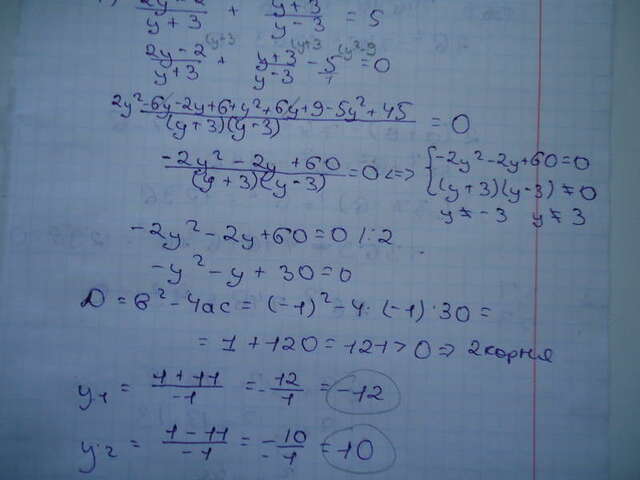 2y-2/y+3 + y+3/y-3 = 5
2y-2/y+3 (y+3 + y+3/y-3 (y+3 - 5/1 (y²-9 = 0
2y²-6y-2y+6+y²+6y+9-5y²+45/(y+3)(y-3) = 0
-2y²-2y+60/(y+3)(y-3) = 0 <=> {-2y²-2y+60=0
(y+3)(y-3) ≠ 0
y ≠ -3 y ≠ 3
-2y²-2y+60=0 |:2
-y²-y+30=0
D = в²-4ac = (-1)²-4·(-1)·30 =
= 1+120=121>0 => 2корня
y1 = 1+11/-1 = -12/1 = -12
y2 = 1-11/-1 = -10/-1 = 10